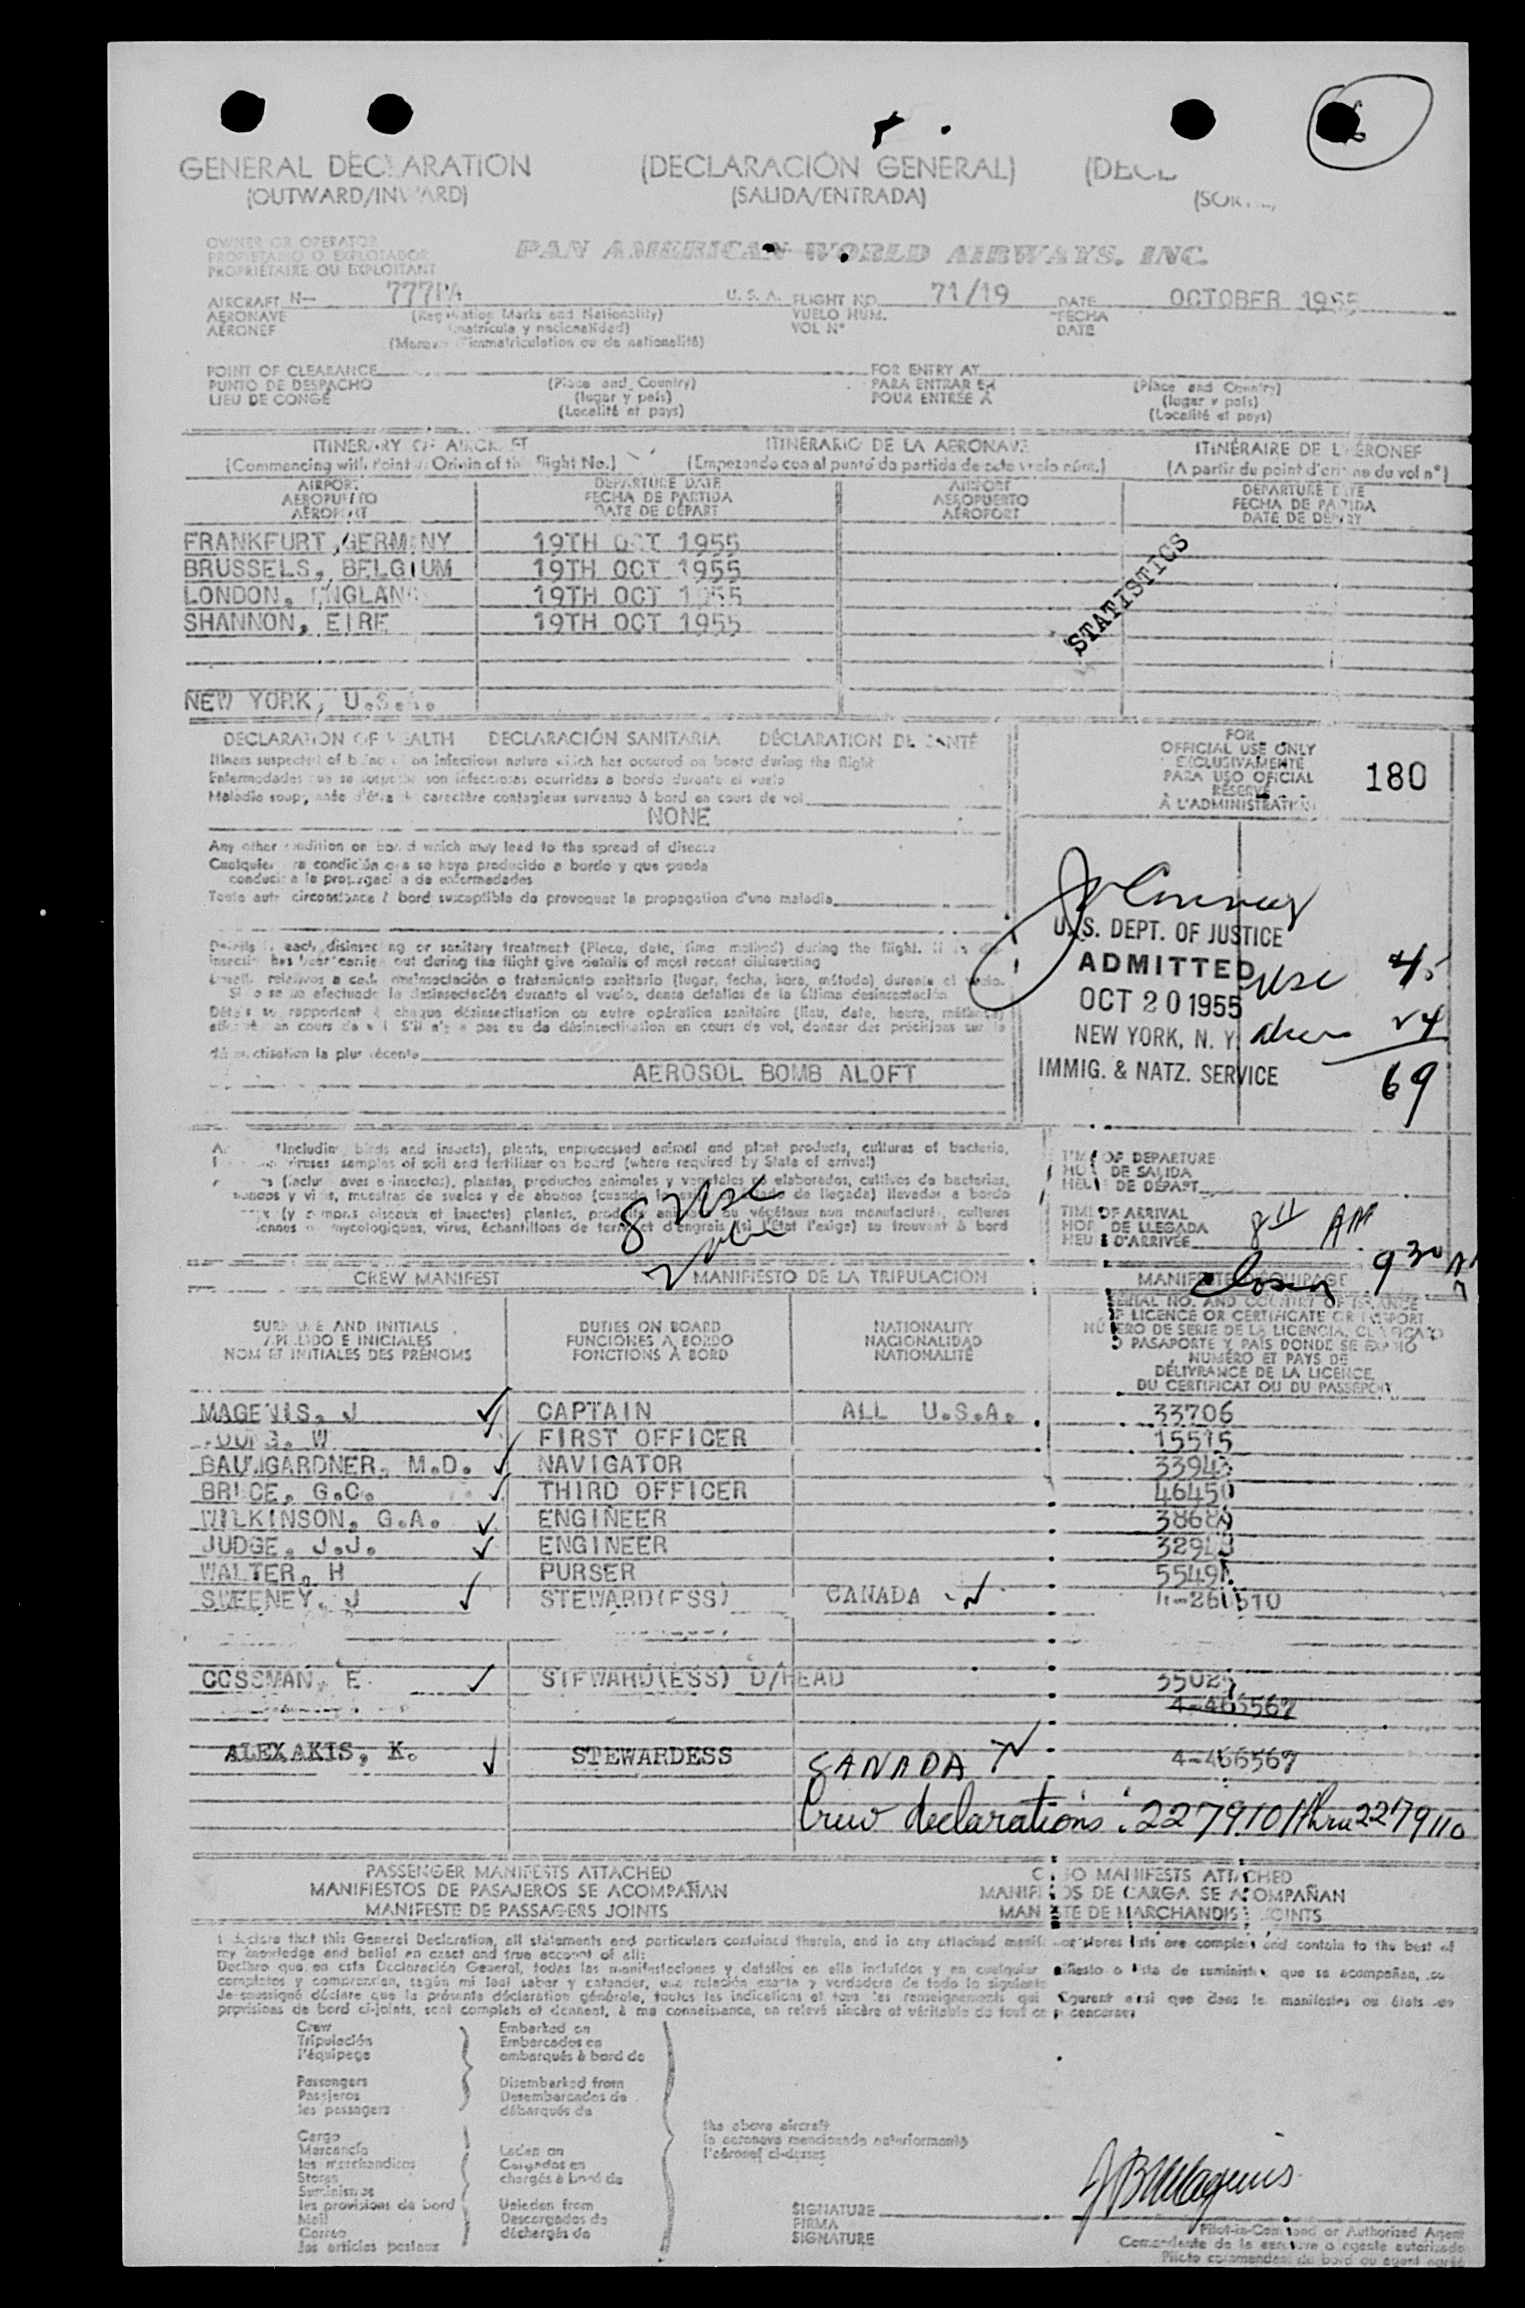 GENERAL DECLARATION (DECLARACIÓN GENERAL) (DECL
(OUTWARD/INWARD) (SALIDA/ENTRADA)
OWNER OR OPERATOR
PROPIETARIO O EXPLOTADOR PAN AMERICAN WORLD AIRWAYS, INC.
PROPRIÉTAIRE OU EXPLOITANT
AIRCRAFT N- 777PA U. S. A. FLIGHT NO. 71/19 DATE OCTOBER 1955
AERONAVE (Registration Marks and Nationality) VUELO NUM. FECHA
AÉRONEF (matrícula y nacionalidad) VOL N° DATE
(Marques d'immatriculation ou de nationalité)
POINT OF CLEARANCE FOR ENTRY AT
PUNTO DE DESPACHO (Place and Country) PARA ENTRAR EN (Place and Country)
LIEU DE CONGÉ (lugar y país) POUR ENTRÉE À (lugar y país)
(Localité et pays) (Localité et pays)
ITINERARY OF AIRCRAFT ITINERARIO DE LA AERONAVE ITINÉRAIRE DE L'AÉRONEF
(Commencing with Point of Origin of the Flight No.) (Empezando con el punto de partida de este vuelo núm.) (A partir du point d'origine du vol n°)
AIRPORT DEPARTURE DATE AIRPORT DEPARTURE DATE
AEROPUERTO FECHA DE PARTIDA AEROPUERTO FECHA DE PARTIDA
AÉROPORT DATE DE DÉPART AÉROPORT DATE DE DÉPART
FRANKFURT, GERMANY 19TH OCT 1955
BRUSSELS, BELGIUM 19TH OCT 1955
LONDON, ENGLAND 19TH OCT 1955
SHANNON, EIRE 19TH OCT 1955
STATISTICS
NEW YORK, U.S.A.
DECLARATION OF HEALTH DECLARACIÓN SANITARIA DÉCLARATION DE SANTÉ
Illness suspected of being of an infectious nature which has occurred on board during the flight
Enfermedades que se sospecha son infecciosas ocurridas a bordo durante el vuelo
Maladie soupçonnée d'être de caractère contagieux survenue à bord en cours de vol
NONE
FOR
OFFICIAL USE ONLY
EXCLUSIVAMENTE
PARA USO OFICIAL
RÉSERVÉ
À L'ADMINISTRATION
180
Any other condition on board which may lead to the spread of disease
Cualquier otra condición que se haya producido a bordo y que pueda
conducir a la propagación de enfermedades
Toute autre circonstance à bord susceptible de provoquer la propagation d'une maladie
Details of each disinsecting or sanitary treatment (Place, date, time, method) during the flight. If no
insecting has been carried out during the flight give details of most recent disinsecting
U.S. DEPT. OF JUSTICE
ADMITTED
OCT 20 1955
NEW YORK, N. Y.
IMMIG. & NATZ. SERVICE
USC 45
alien 24
69
Si no se ha efectuado la desinsectación durante el vuelo, dense detalles de la última desinsectación
désinsectisation la plus récente
AEROSOL BOMB ALOFT
(including birds and insects), plants, unprocessed animal and plant products, cultures of bacteria,
viruses samples of soil and fertilizer on board (where required by State of arrival)
8 USC
2 alien
TIME OF DEPARTURE
HORA DE SALIDA
HEURE DE DÉPART
TIME OF ARRIVAL
HORA DE LLEGADA 8 11 AM
HEURE D'ARRIVÉE
Closed 9 30
CREW MANIFEST MANIFIESTO DE LA TRIPULACIÓN MANIFESTE D'ÉQUIPAGE
SURNAME AND INITIALS DUTIES ON BOARD NATIONALITY SERIAL NO. AND COUNTRY OF ISSUANCE
APELLIDO E INICIALES FUNCIONES A BORDO NACIONALIDAD OF LICENCE OR CERTIFICATE OR PASSPORT
NOM ET INITIALES DES PRÉNOMS FONCTIONS À BORD NATIONALITÉ NÚMERO DE SERIE DE LA LICENCIA, CERTIFICADO
O PASAPORTE Y PAÍS DONDE SE EXPIDIÓ
NUMÉRO ET PAYS DE
DÉLIVRANCE DE LA LICENCE,
DU CERTIFICAT OU DU PASSEPORT
MAGENIS, J CAPTAIN ALL U.S.A. 33706
W FIRST OFFICER 15515
BAUMGARDNER, M.D. NAVIGATOR 33943
BRUCE, G.C. THIRD OFFICER 46450
WILKINSON, G.A. ENGINEER 38689
JUDGE, J.J. ENGINEER
WALTER, H PURSER
SWEENEY, J STEWARD(ESS) CANADA
COSSMAN, E STEWARD(ESS) D/HEAD
4-466567
ALEXAKIS, K. STEWARDESS CANADA 4-466567
Crew declarations: 2279101 thru 2279110
PASSENGER MANIFESTS ATTACHED CARGO MANIFESTS ATTACHED
MANIFIESTOS DE PASAJEROS SE ACOMPAÑAN MANIFIESTOS DE CARGA SE ACOMPAÑAN
MANIFESTE DE PASSAGERS JOINTS MANIFESTE DE MARCHANDISES JOINTS
I declare that this General Declaration, all statements and particulars contained therein, and in any attached manifests or stores lists are complete and contain to the best of
my knowledge and belief an exact and true account of all:
Declaro que en esta Declaración General, todas las manifestaciones y detalles en ella incluidos y en cualquier manifiesto o lista de suministros que se acompañan, son
completos y comprenden, según mi leal saber y entender, una relación exacta y verdadera de todo lo siguiente
Je soussigné déclare que la présente déclaration générale, toutes les indications et tous les renseignements qui y figurent ainsi que dans les manifestes ou états des
provisions de bord ci-joints, sont complets et donnent, à ma connaissance, un relevé sincère et véritable de tout ce qui concerne:
Crew Embarked on
Tripulación Embarcados en
l'équipage embarqués à bord de
Passengers Disembarked from
Pasajeros Desembarcados de
les passagers débarqués de
Cargo the above aircraft
Mercancía Laden on la aeronave mencionada anteriormente
les marchandises Cargados en l'aéronef ci-dessus
Stores chargés à bord de
Suministros
les provisions de bord Unladen from
Mail Descargados de
Correo déchargés de
les articles postaux
SIGNATURE
FIRMA
SIGNATURE
Pilot-in-Command or Authorized Agent
Comandante de la aeronave o agente autorizado
Pilote commandant de bord ou agent agréé